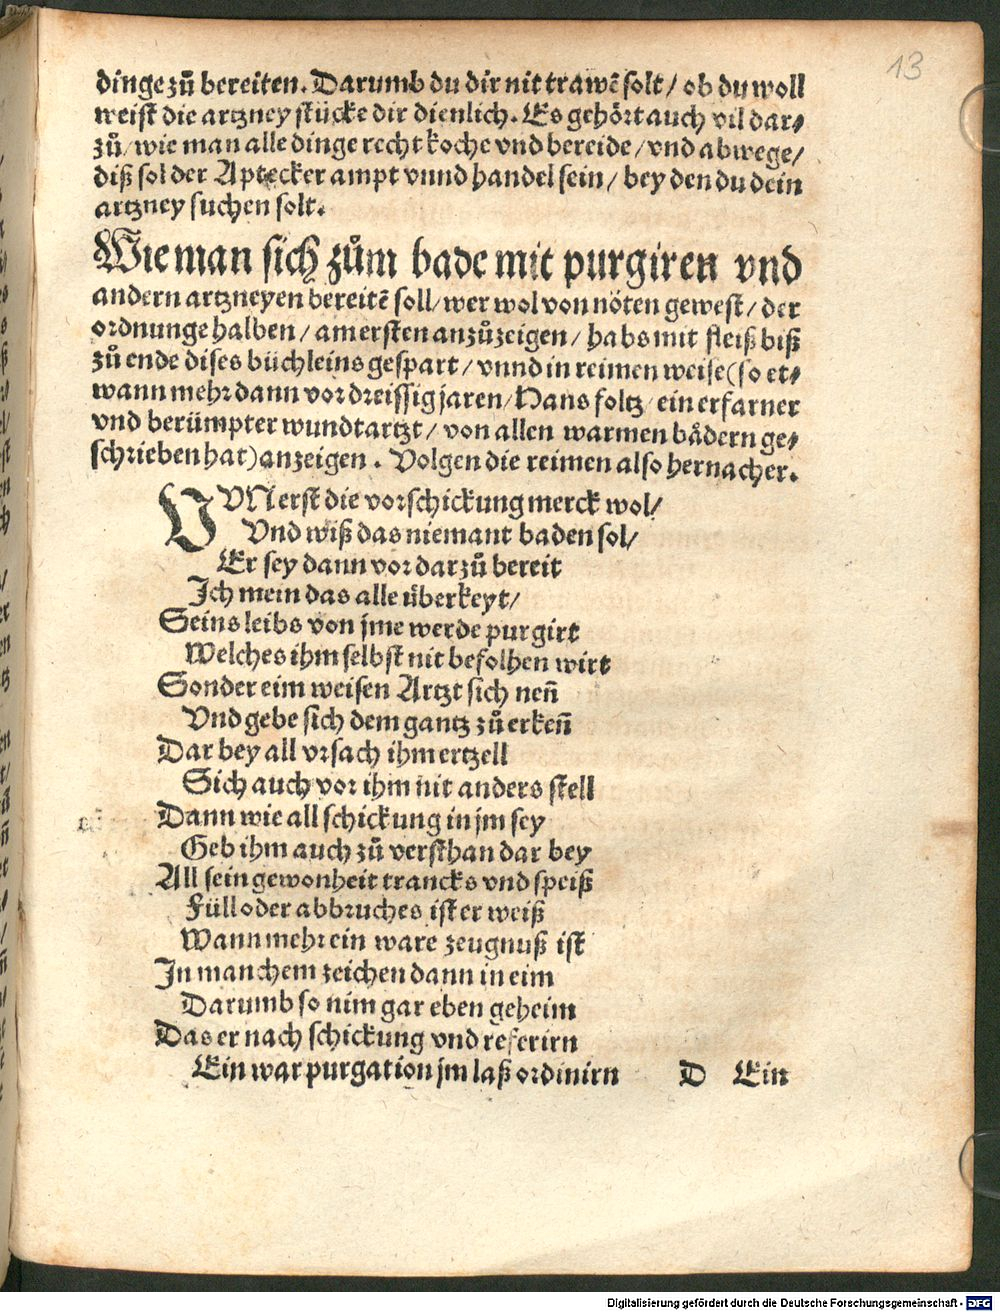 13
dinge zů bereiten. Darumb du dir nit trawē solt / ob du woll
weist die artzney stücke dir dienlich. Es gehört auch vil dar⸗
zů / wie man alle dinge recht koche vnd bereide / vnd abwege /
diß sol der Aptecker ampt vnnd handel sein / bey den du dein
artzney suchen solt.
Wie man sich zům bade mit purgiren vnd
andern artzneyen bereitē soll / wer wol von nöten gewest / der
ordnunge halben / am ersten anzůzeigen / habs mit fleiß biß
zů ende dises büchleins gespart / vnnd in reimen weise (so et⸗
wann mehr dann vor dreissig jaren / Hans foltz / ein erfarner
vnd berümpter wundtartzt / von allen warmen bådern ge⸗
schrieben hat) anzeigen. Volgen die reimen also hernacher.
VVM erst die vorschickung merck wol /
Vnd wiß das niemant baden sol /
Er sey dann vor darzů bereit
Ich mein das alle überkeyt /
Seins leibs von jme werde purgirt
Welches ihm selbst nit befolhen wirt
Sonder eim weisen Artzt sich neñ
Vnd gebe sich dem gantz zů erkeñ
Dar bey all vrsach ihm ertzell
Sich auch vor ihm nit anders stell
Dann wie all schickung in jm sey
Geb ihm auch zů versthan dar bey
All sein gewonheit trancks vnd speiß
Füll oder abbruches ist er weiß
Wann mehr ein ware zeugnuß ist
In manchem zeichen dann in eim
Darumb so nim gar eben geheim
Das er nach schickung vnd referirn
Ein war purgation jm laß ordinirn D Ein
Digitalisierung gefördert durch die Deutsche Forschungsgemeinschaft - DFG